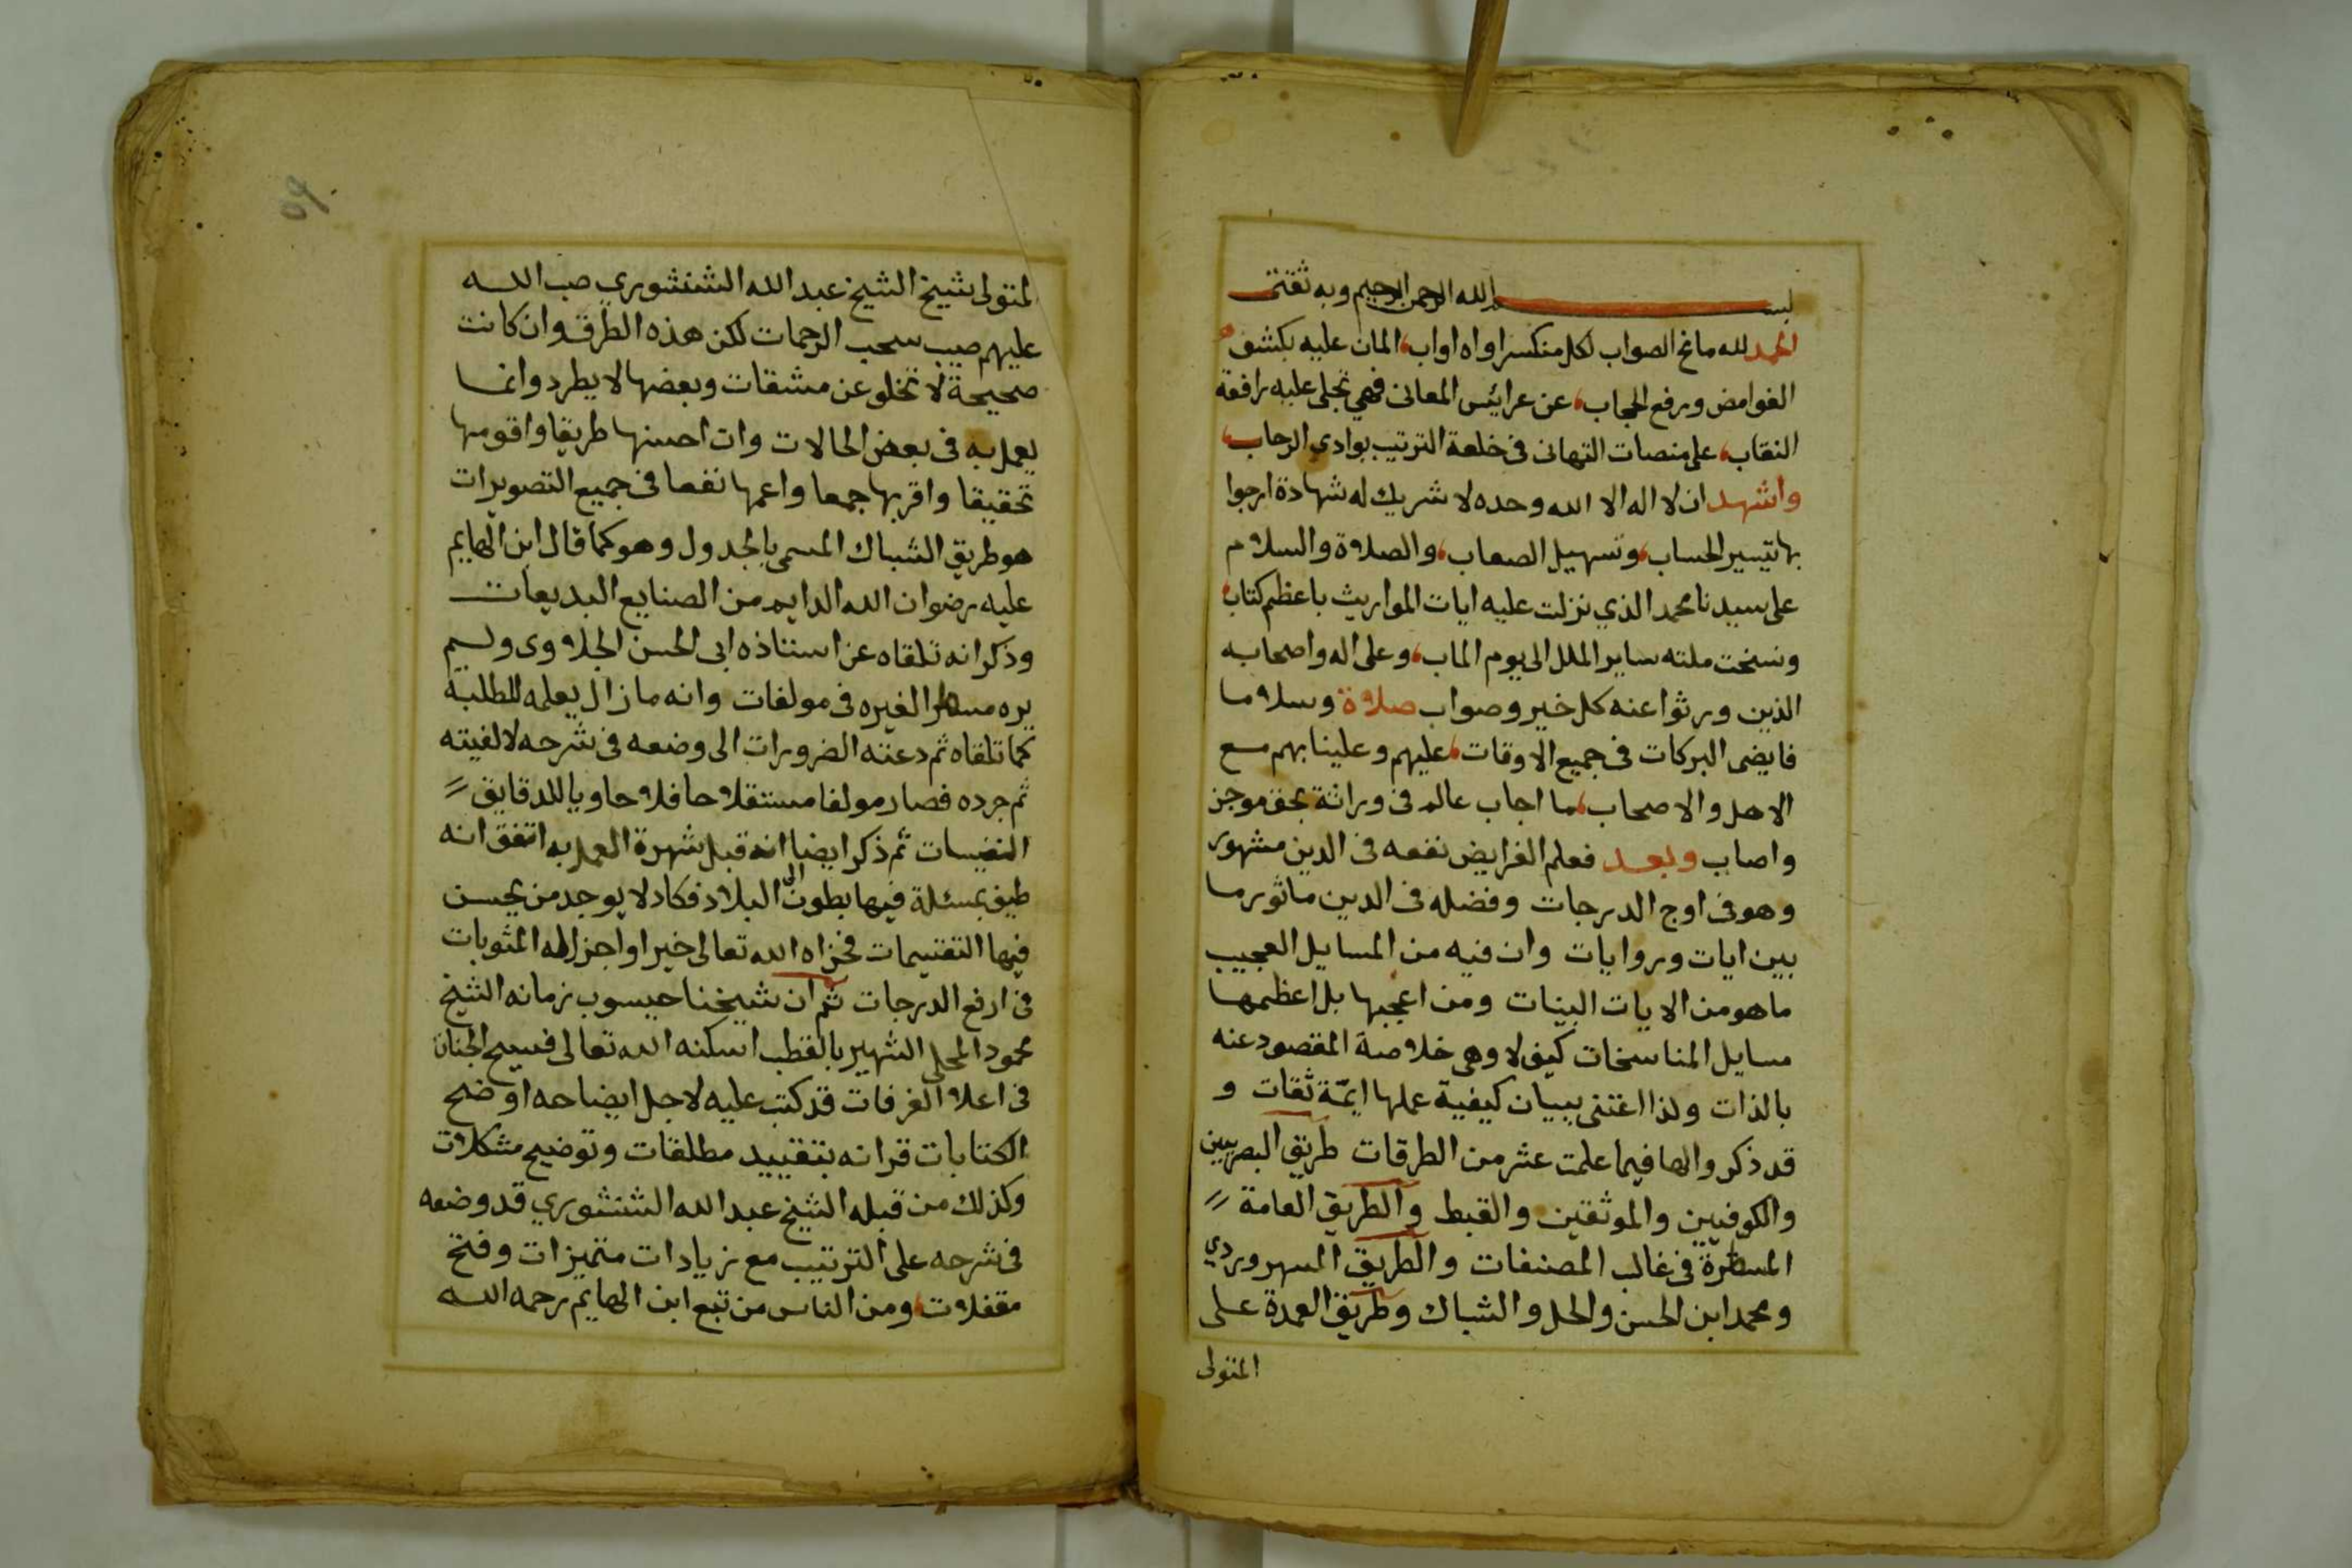 بسم الله الرحمن الرحيم وبه ثقتي
الحمد لله مانح الصواب لكل منكسر اواه اواب، المان عليه بكشف
الغوامض ورفع الحجاب، عن عرائيس المعانى فهي تجلى عليه رافعة
النقاب، على منصات التهانى فى خلعة الترتيب بوادي الرحاب،
واشهد ان لا اله الا الله وحده لا شريك له شهادة ارجوا
بها تيسير الحساب، وتسهيل الصعاب، والصلاة والسلام
على سيدنا محمد الذي نزلت عليه ايات المواريث باعظم كتاب،
ونسخت ملته ساير الملل الى يوم الماب، وعلى اله واصحابه
الذين ورثوا عنه كل خير وصواب صلاة وسلاما
فايضى البركات فى جميع الاوقات، عليهم وعلينا بهم مع
الاهل والاصحاب، ما اجاب عالم فى وراثة بحق موجز
واصاب وبعد فعلم الفرايض نفعه فى الدين مشهور
وهو فى اوج الدرجات وفضله فى الدين ماثور ما
بين ايات وروايات وان فيه من المسايل العجيب
ما هو من الايات البينات ومن اعجبها بل اعظمها
مسايل المناسخات كيف لا وهى خلاصة المقصود عنه
بالذات ولذا اعتنى ببيان كيفية عملها ايمّة ثقات و
قد ذكروا لها فيما علمت عشر من الطرقات طريق البصريين
والكوفيين والموثقين والقبط والطريق العامة
المسطرة فى غالب المصنفات والطريق السهروردي
ومحمد ابن الحسن والحل والشباك وطريق العمدة على
المتولى
لمتولى شيخ الشيخ عبد الله الشنشوري صب الله
عليهم صيب سحب الرحمات لكن هذه الطرق وان كانت
صحيحة لا تخلو عن مشقات وبعضها لا يطرد وانما
يعمل به فى بعض الحالات وان احسنها طريقا واقومها
تحقيقا واقربها جمعا واعمها نفعا فى جميع التصويرات
هو طريق الشباك المسمى بالجدول وهو كما قال ابن الهايم
عليه رضوان الله الدايم من الصنايع البديعات
وذكر انه تلقاه عن استاذه ابى الحسن الجلاوى ولم
يره مسطرا لغيره فى مولفات وانه ما زال يعلمه للطلبة
كما تلقاه ثم دعته الضرورات الى وضعه فى شرحه لالفيته
ثم جرده فصار مولفا مستقلا حافلا حاويا للدقايق
النفيسات ثم ذكر ايضا انه قبل شهرة العمل به اتفق انه
طيف بمسئلة فيها بطون الى البلاد فكاد لا يوجد من يحسن
فيها التقسيمات فجزاه الله تعالى خيرا واجزل له المثوبات
فى ارفع الدرجات ثم ان شيخنا حيسوب زمانه الشيخ
محمود المحلى الشهير بالقطب اسكنه الله تعالى فسيح الجنان
فى اعلا الغرفات قد كتب عليه لاجل ايضاحه اوضح
الكتابات قرانه بتقييد مطلقات وتوضيح مشكلات
وكذلك من قبله الشيخ عبد الله الشنشوري قد وضعه
فى شرحه على الترتيب مع زيادات متميزات وفتح
مقفلات، ومن الناس من تبع ابن الهايم رحمه الله